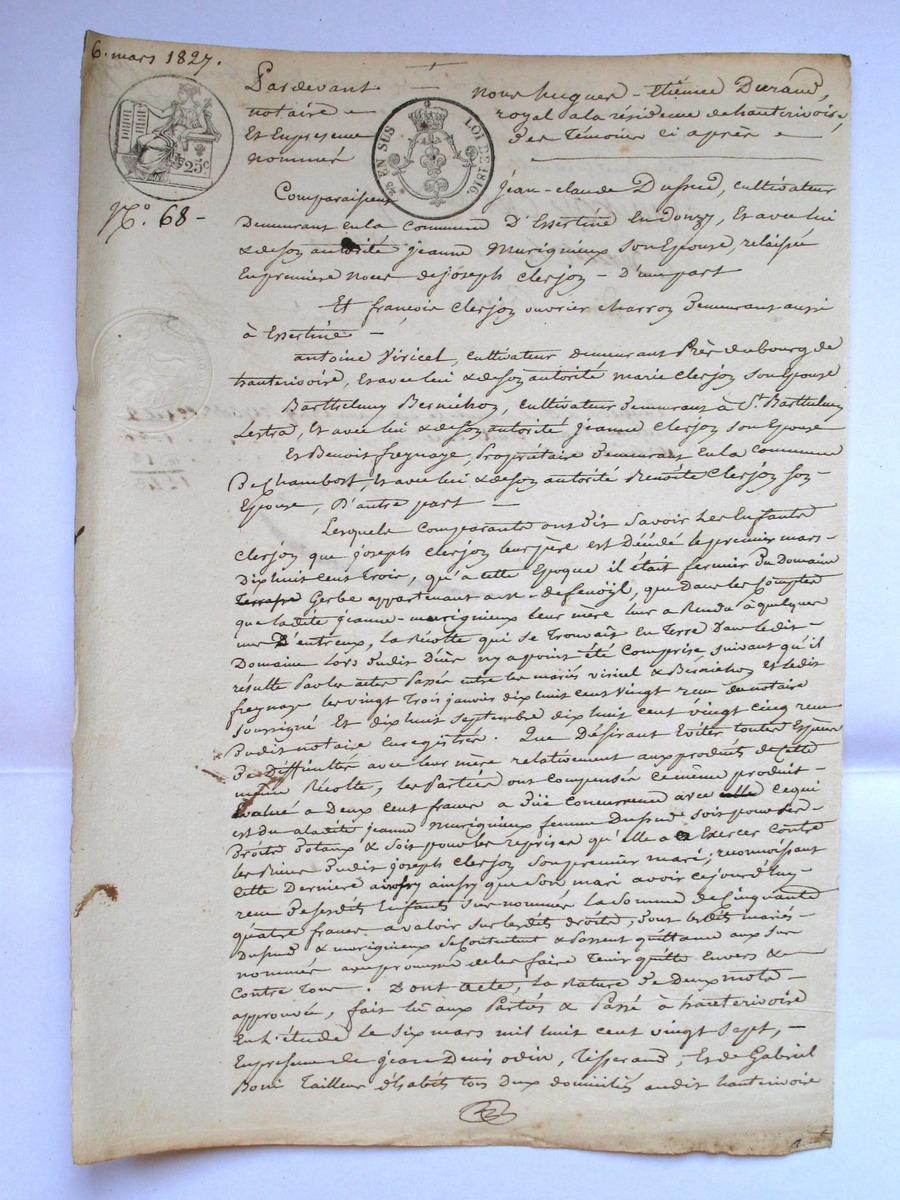 6. mars 1827.
Pardevant nous hugues-étienne Durand,
notaire royal a la résidence de hauterivoire,
Et En presence des Témoins ci après
nommés
25c
EN SUS LOI DE 1816.
N.o 68-
Comparaissent jean-claude Dusfned, cultivateur
demeurant en la commune D'Essertine en donzy, et avec lui
& de son autorité jeanne Murignieux son Epouse, relaissée
en premiere noces de joseph Clerjon - D'une part
Et françois Clerjon ouvrier charron demeurant aussi
à Essertine -
antoine Viricel, cultivateur demeurant Près du bourg de
hauterivoire, et avec lui & de son autorité marie Clerjon son Epouse
Barthelemy Bernichon, cultivateur demeurant à St. Barthelemy
Lestra, et avec lui & de son autorité jeanne Clerjon son Epouse
Et Benoit freynage, Propriétaire demeurant en la commune
De Chambost, et avec lui & de son autorité Benoîte Clerjon son
Epouse, D'autre part -
Lesquels Comparants ont dit savoir Les Enfants
Clerjon que joseph Clerjon leur père est Décédé le premier mars
Dix huit cent trois, qu'a cette Epoque il était fermier du Domaine
Gerbe appartenant a de fenoÿl, que dans les Comptes
que ladite jeanne murignieux leur mère leur a Rendu à quelques
uns D'entreux, la Récolte qui se trouvait En terre dans ledit
Domaine lors dudit Décès n'y a point été Comprise suivant qu'il
résulte Par les actes Passés entre les mariés viricel & Bernichon et ledit
freynage les vingt trois janvier dix huit cent vingt reçu du notaire
soussigné Et dix huit septembre dix huit cent vingt cinq reçu
dudit notaire Enregistrés. Que Désirant Eviter toutes Espèces
De Difficultés avec leur mère relativement aux produits de Cette
même Récolte, les Parties ont Compensé ce même produit
Evalué a Deux cent francs a Due Concurrence avec ce qui
est du a ladite jeanne murignieux femme Dusfned soit pour ses
Droits Dotaux & soit pour les reprises qu'elle a a Exercer Contre
les Biens dudit joseph Clerjon son premier mari; reconnaissant
Cette Derniere ainsy que son mari avoir cejourd'huy
reçu desdits Enfants sus nommés la somme de Cinquante
quatre francs a valoir sur lesdits droits, dont lesdits mariés
Dusfned & murignieux se Contentent & Passent quittance aux sus
nommés avec promesse de les faire Tenir quitte Envers &
Contre Tous. Dont acte, la Rature de Deux mots
approuvée, fait lu aux Parties & Passé à hauterivoire
En L'étude le six mars mil huit cent vingt sept, -
En presence de jean Denis odin, Tisserand, Et de Gabriel
Boni Tailleur d'habits tous deux domiciliés audit hauterivoire